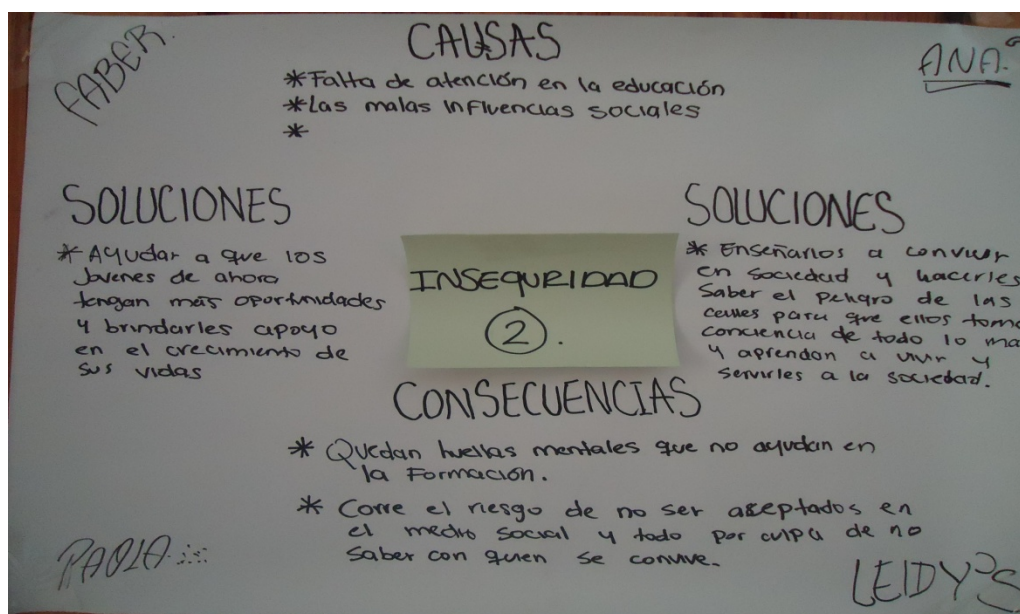 FABER.
CAUSAS
ANA.
*Falta de atención en la educación
*Las malas influencias sociales
*
SOLUCIONES
* Ayudar a que los
Jovenes de ahora
tengan más oportunidades
y brindarles apoyo
en el crecimiento de
sus vidas
INSEGURIDAD
2.
SOLUCIONES
* Enseñarlos a convivir
en sociedad y hacerles
Saber el peligro de las
calles para que ellos tome
conciencia de todo lo ma
y aprendan a vivir y
servirles a la sociedad.
CONSECUENCIAS
* Quedan huellas mentales que no ayudan en
la Formación.
* Corre el riesgo de no ser aseptados en
el medio social y todo por culpa de no
saber con quien se convive.
PAOLA
LEIDY'S